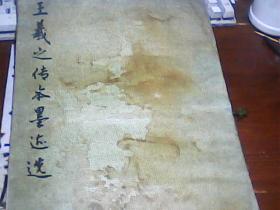 王羲之传本墨迹选